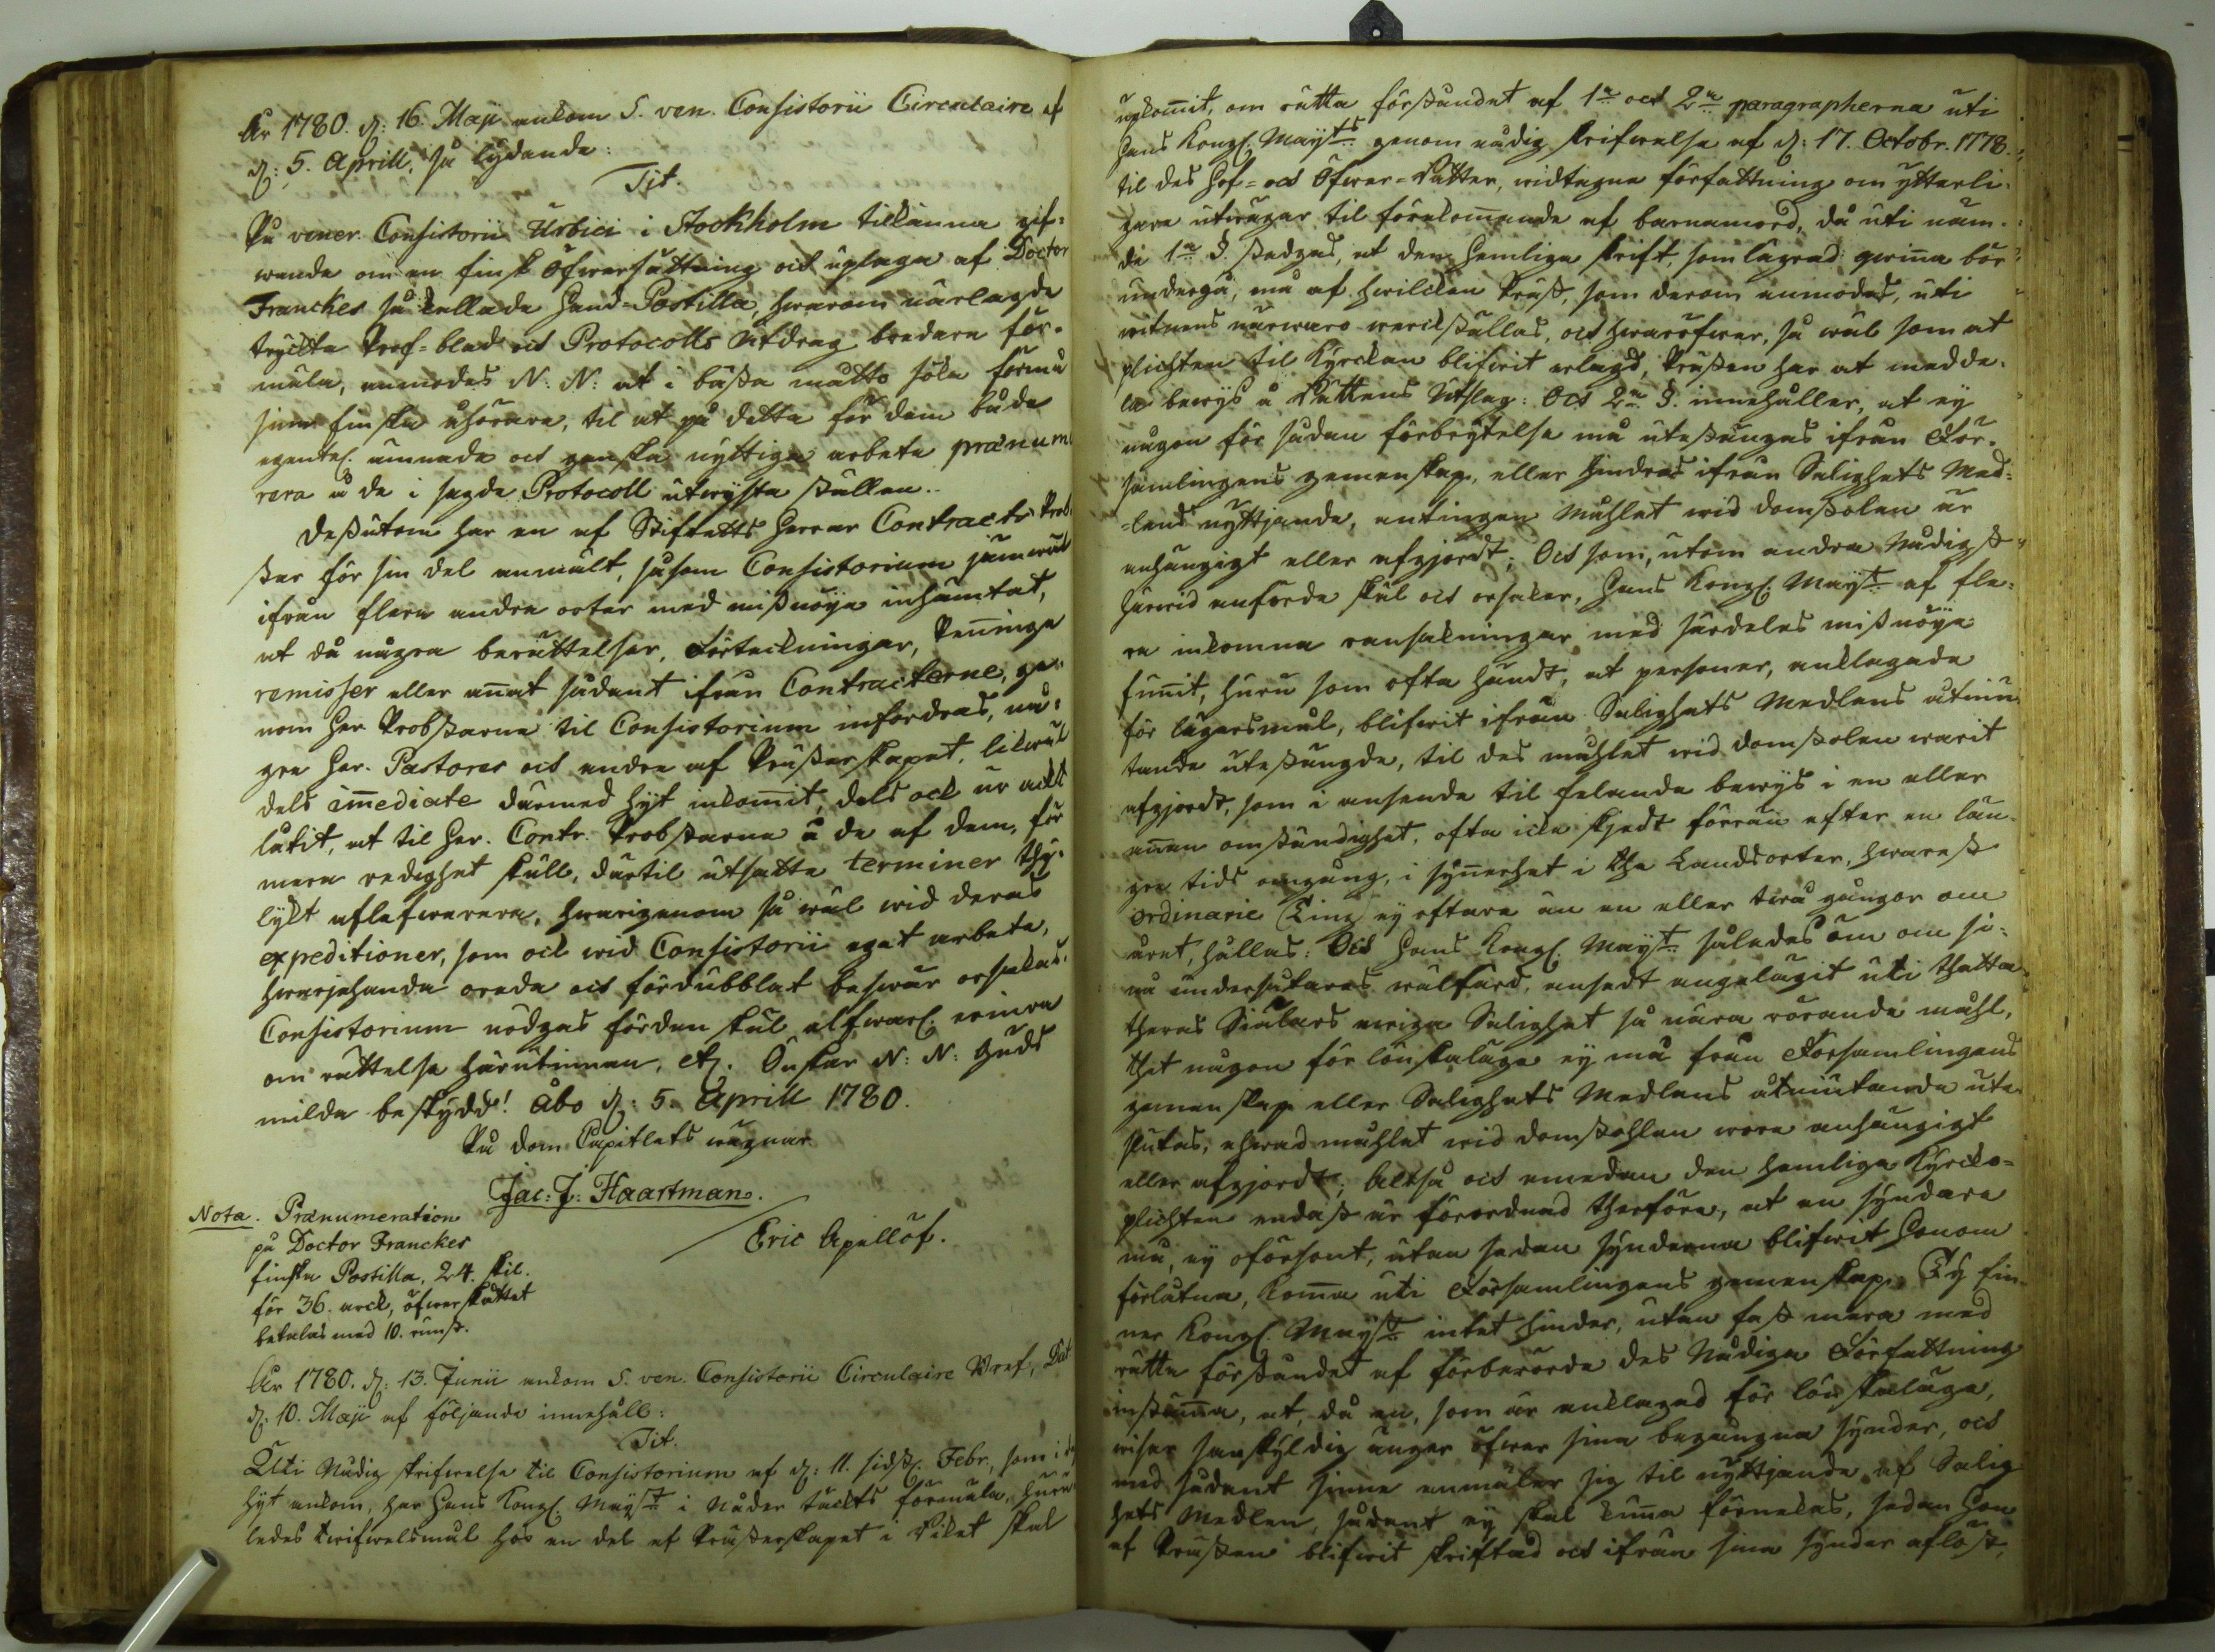 År 1780. d: 16. Maji ankom S. ven. Consistorii Circulaire af
d: 5. Aprill, så lydande:
Tit.
På vener. Consistorii Urbici i Stockholm tilkänna gif-
wande om en finsk Öfwersättning och uplaga af Doctor
Franckes så kallade Hand-Postilla, hwarom närlagde
tryckta Prof-blad och Protocolls Utdrag bredare för-
mäla, anmodas N: N: at i bästa måtto söka förmå
sina finska åhörare, til at på detta för dem både
egentel. ämnade och ganska nyttiga arbete prænume
rera å de i sagde Protocoll utwyste ställen.
Dessutom har en af Stiftets Herrar Contracts Prob-
star för sin del anmält, såsom Consistorium jämwäl
ifrån flera andra orter med missnöje inhämtat,
at då några berättelser, Förteckningar, Penninge
remisser eller annat sådant ifrån Contracterne, ge-
nom Her. Probstarna til Consistorium infordras, nå-
gre Her. Pastores och andre af Prästerskapet, likwäl
dels immediate därmed hyt inkommit, dels ock ur ackt
låtit, at til Her. Contr. Probstarne å de af dem, för
mera redighet skull, därtil utsatte terminer thy-
lykt aflefwerera, hwarigenom så wäl wid deras
expeditioner, som ock wid Consistorii eget arbete,
hwarjehanda oreda och fördubblat beswär orsakas.
Consistorium nödgas fördenskul alfwarl. erinra
om rättelse härutinnan, etc. Önskar N: N: Guds
milda beskydd! Åbo d: 5. Aprill 1780.
På Dom Capitlets wägnar
Jac: J: Haartman.
Eric Apellöf.
Nota. Prænumeration
på Doctor Franckes
finska Postilla, 24. skil.
för 36. arck, öfwerskåttet
betalas med 10. runst.
År 1780. d: 13. Junii ankom S. ven. Consistorii Circulaire Bref, Dat
d: 10. Maji af följande innehåll:
Tit.
Uti Nådig skrifwelse til Consistorium af d: 11. sidstl. Febr., som i
hyt ankom, har Hans Kongl. Mayst. i Nåder täckts förmäla, huru
ledes twifwelsmål hos en del af Prästerskapet i Riket skal
upkommit, om rätta förståndet af 1a och 2a paragrapherna uti
Hans Kongl. Mayts genom nådig skrifwelse af d: 17. Octobr. 1778.
til des Hof- och Öfwer-Rätter, widtagne författning om ytterli-
gare utwägar til förekommande af barnamord, då uti näm-
de 1a §. stadgas, at den hemliga skrift, som lägrad qwinna bör
undergå, må af hwilcken Präst, som derom anmodas, uti
witnens närwaro werckställas, och hwaröfwer, så wäl som at
plichten til Kyrckan blifwit erlagd, Prästen har at medde-
la bewys å Rättens Utslag: Och 2a §. innehåller, at ey
någon för sådan förbrytelse må utestängas ifrån För-
samlingens gemenskap, eller hindras ifrån Salighets Med-
lens nyttjande, antingen Måhlet wid domstolen är
anhängigt eller afgjordt; Och som, utom andra Nådigst
härwid anförde skäl och orsaker, Hans Kongl. Mayst. af fle-
ra inkomna ransakningar med särdeles missnöje
funnit, huru som ofta händt, at personer, anklagade
för lägersmål, blifwit ifrån Salighets Medlens åtniu
tande utestängde, til des måhlet wid domstolen warit
afgjordt, som i anseende til felande bewys i en eller
annan omständighet, ofta icke skjedt förrän efter en lån-
gre tids omgång, i synnerhet i the Landsorter, hwarest
ordinarie Ting ey oftare än en eller twå gånger om
året, hållas: Och Hans Kongl. Mayst. således öm om si-
na undersåtares wälfärd, ansedt angelägit uti thetta
theras Siälars ewiga Salighet så nära rörande måhl,
thet någon för lönskaläge ey må från Församlingens
gemenskap eller Salighets Medlens åtniutande ute
slutas, ehwad måhlet wid domstohlen wore anhängigt
eller afgjordt; Altså och emedan den hemliga Kyrcko-
plichten endast är förordnad therföre, at en syndare
må, ey oförsont, utan sedan synderna blifwit honom
förlåtna, komma uti Församlingens gemenskap; Ty fin-
ner Kongl. Mayst. intet hinder, utan fast mera med
rätta förståndet af förberörde des Nådiga Författning
instämma, at, då en, som är anklagad för lönskaläge,
wiser sanskyldig ånger öfwer sina begångna synder, och
med sådant sinne anmäler sig til nyttjande af Salig
hets Medlen, sådant ey skal kunna förnekas, sedan Han
af Prästen blifwit skriftad och ifrån sina synder aflöst,